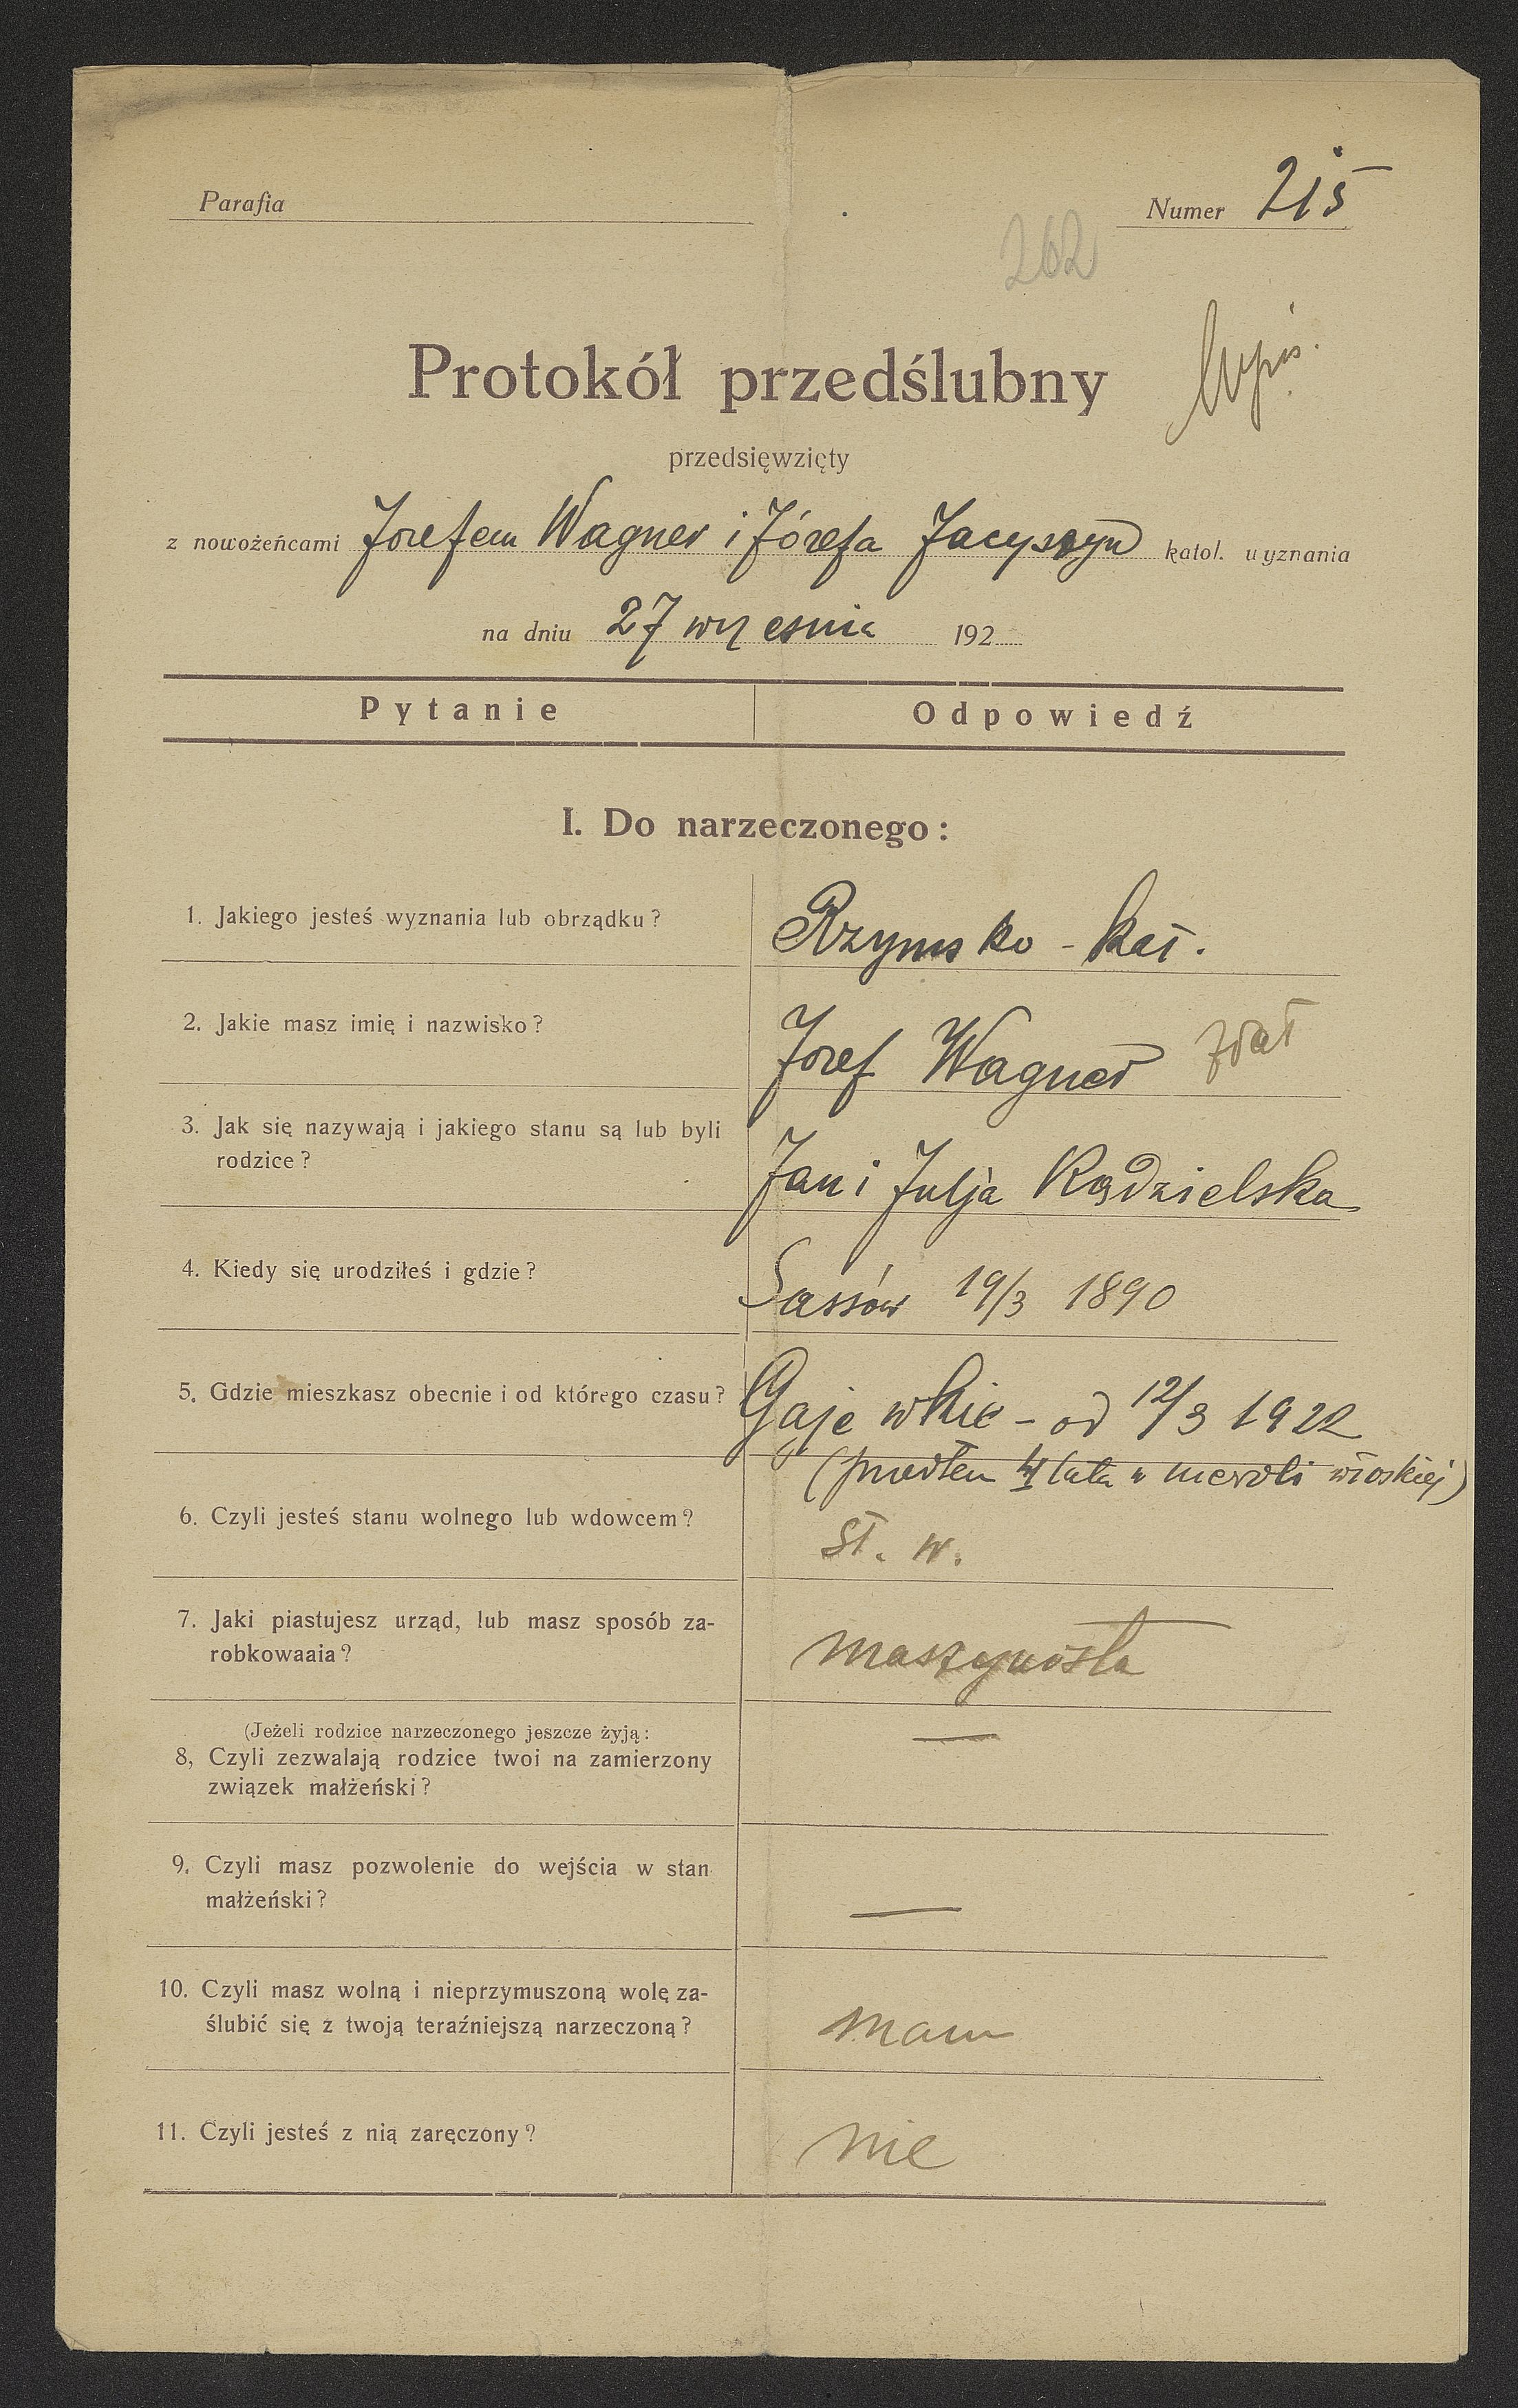 Parafia
Numer 215
262
Protokół przedślubny
przedsięwzięty
z nowożeńcami Józefem Wagner i Józefa Jacyszyn katol. wyznania
na dniu 27 września 192
Pytanie
Odpowiedź
I. Do narzeczonego:
1. Jakiego jesteś wyznania lub obrządku?
Rzymsko-kat.
2. Jakie masz imię i nazwisko?
Józef Wagner
3. Jak się nazywają i jakiego stanu są lub byli
rodzice?
Jan i Julja Kądzielska
4. Kiedy się urodziłeś i gdzie?
Sassów 19/3 1890
5. Gdzie mieszkasz obecnie i od którego czasu?
Gaje wkie - od 12/3 1922
(przedtem lata w niewoli włoskiej)
6. Czyli jesteś stanu wolnego lub wdowcem?
st. w.
7. Jaki piastujesz urząd, lub masz sposób za-
robkowaaia?
maszynista
(Jeżeli rodzice narzeczonego jeszcze żyją:
8, Czyli zezwalają rodzice twoi na zamierzony
związek małżeński?
—
9. Czyli masz pozwolenie do wejścia w stan
małżeński?
—
10. Czyli masz wolną i nieprzymuszoną wolę za-
ślubić się z twoją teraźniejszą narzeczoną?
mam
11. Czyli jesteś z nią zaręczony?
nie